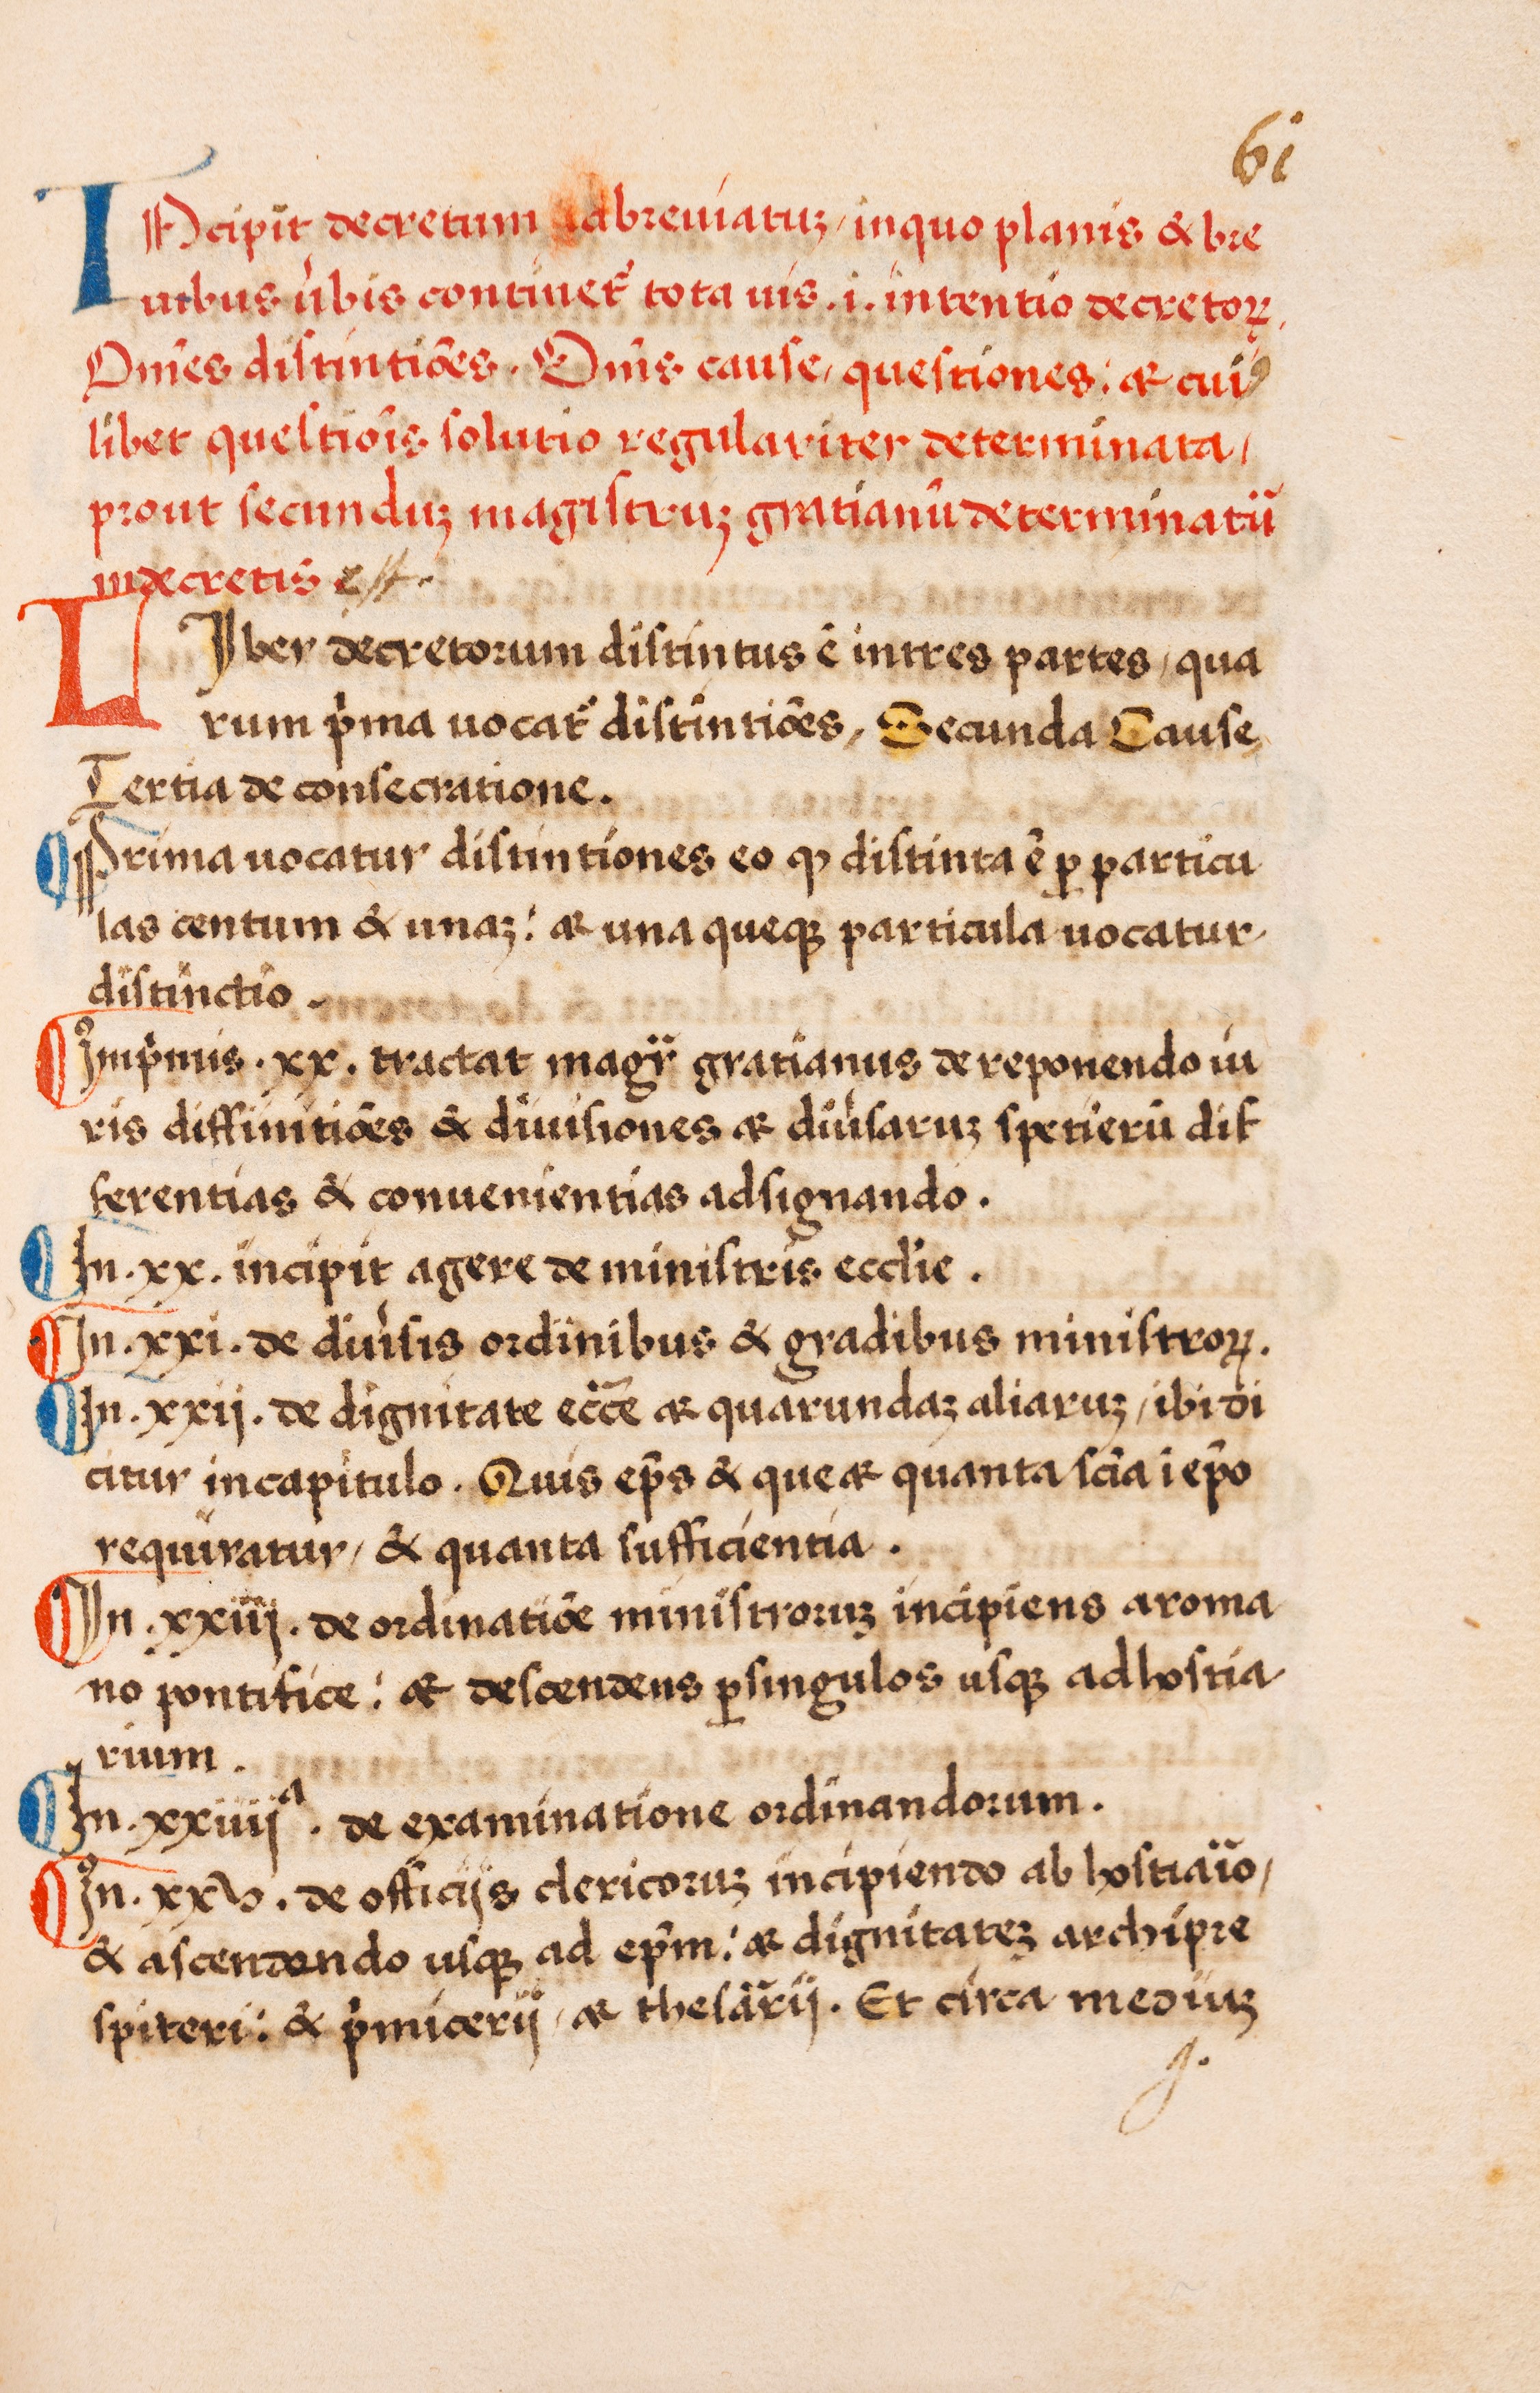 6i
INcipit decretum abreuiatuꝫ / in quo planis & bre
uibus ũbis continet᷑ tota uis . i . intentio decretoꝝ,
Om̃es distintiões . Om̃s cause, questiones: & cuiꝰ
libet questiõis solutio regulariter determinata /
prout secunduꝫ magistruꝫ gratianũ determinatũ
in decretis est .
LIber decretorum distintus ẽ in tres partes / qua
rum p̃ma uocat᷑ distintiões / Secunda Cause,
Tertia de consecratione .
Prima uocatur distintiones eo ꝙ distinta ẽ ꝑ particu
las centum & unaꝫ : & una queqꝫ particula uocatur
distinctio .
Imp̃mis . xx . tractat magr̃ gratianus de reponendo iu
ris diffinitiões & diuisiones & diũsaruꝫ spetierũ dif
ferentias & conuenientias adsignando .
In . xx . incipit agere de ministris ecclĩe .
In . xxi . de diũsis ordinibus & gradibus ministroꝝ .
In . xxii . de dignitate ecc̃e & quarundaꝫ aliaruꝫ / ibi di
citur in capitulo . Quis ep̃s & que & quanta scĩa ĩ ep̃o
requiratur / & quanta sufficientia .
In . xxiii . de ordinatiõe ministroruꝫ incipiens a roma
no pontifice : & descendens ꝑ singulos usqꝫ ad hostia
rium .
In . xxiiiiᵃ . de examinatione ordinandorum .
In . xxv . de officijs clericoruꝫ incipiendo ab hostiaĩo /
& ascendendo usqꝫ ad ep̃m : & dignitateꝫ archipre
spiteri : & p̃micerij / & thesãrij . Et circa mediuꝫ